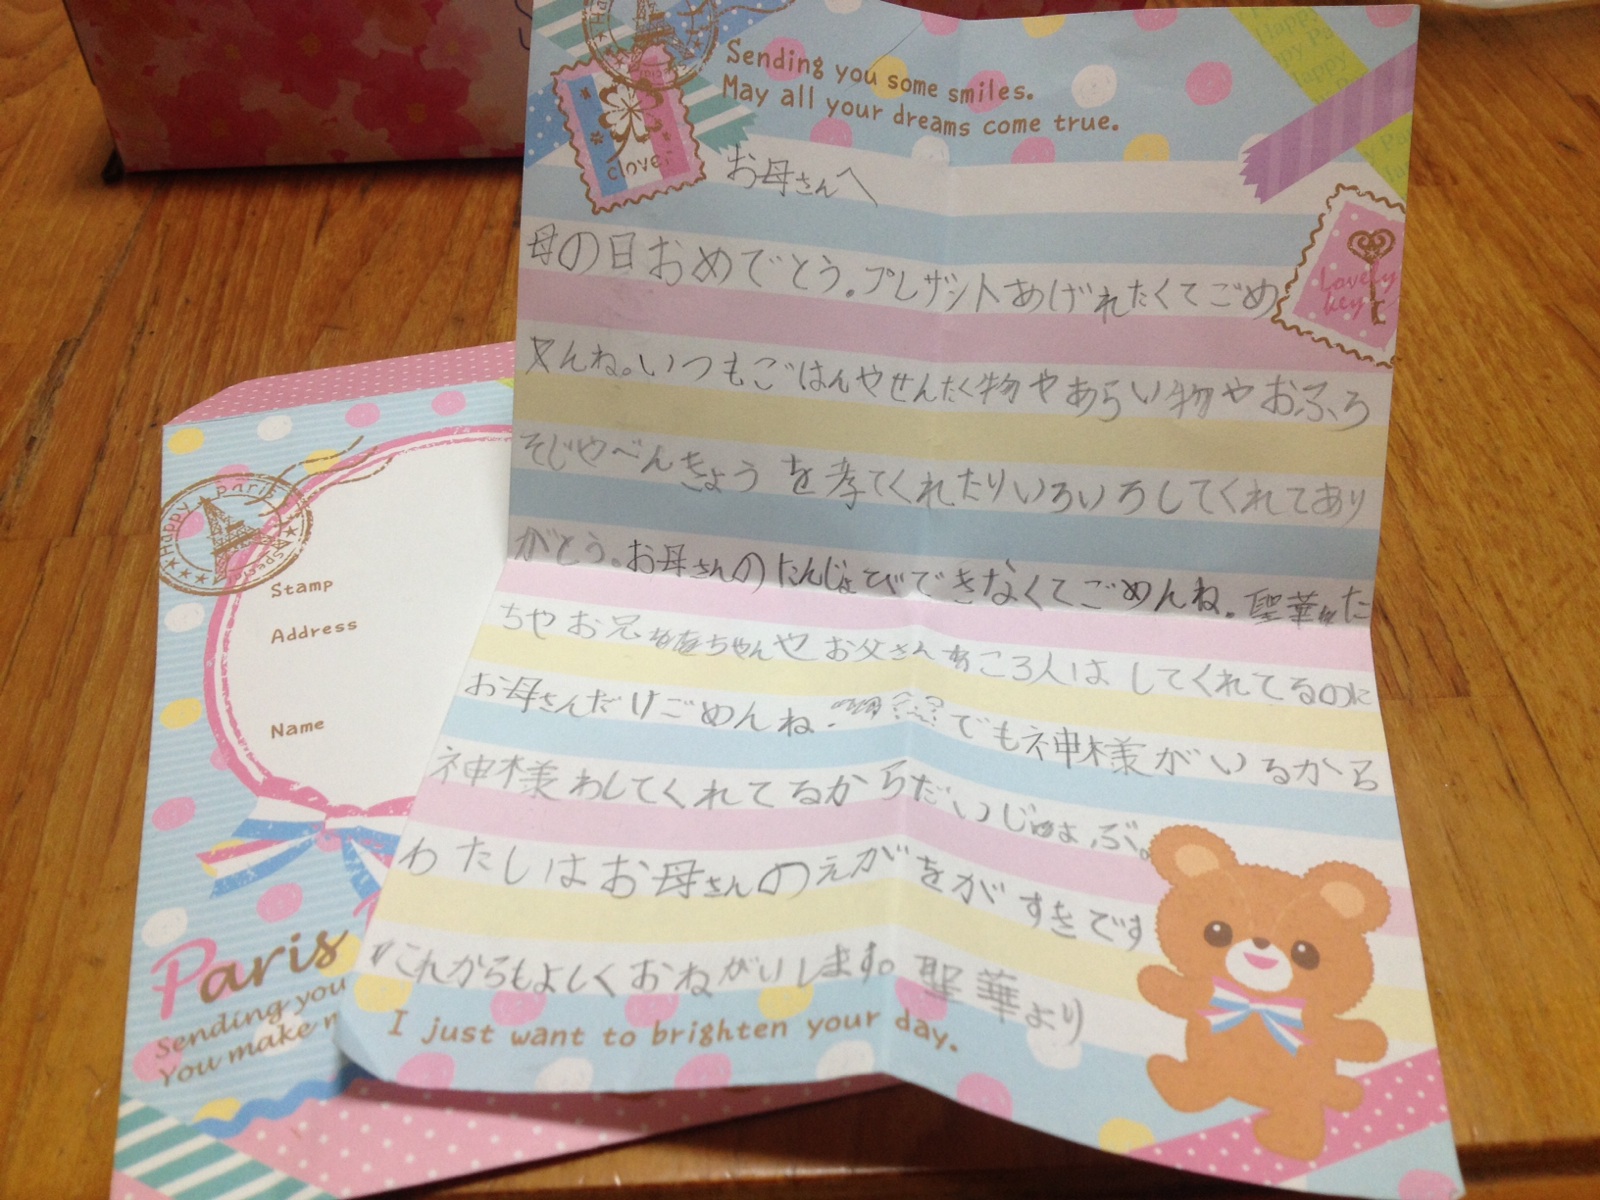 Sending you some smiles.
May all your dreams come true.
clover
Lovely
key
お母さんへ
母の日おめでとう。プレザントあげれたくてごめ
んね。いつもごはんやせんたく物やあらい物やおふろ
そじやべんきょうを孝てくれたりいろいろしてくれてあり
がとう。お母さんのたんじょびできなくてごめんね。聖華た
ちやお兄ちゃんやお父さん ころ人はしてくれてるのに
お母さんだけごめんね。でも神様がいるから
神様わしてくれてるからだいじょぶ。
わたしはお母さんのえがをがすきです
これからもよしくおねがいします。聖華より
I just want to brighten your day.
Happy Paris
Special
Stamp
Address
Name
Paris
Sending you
You make